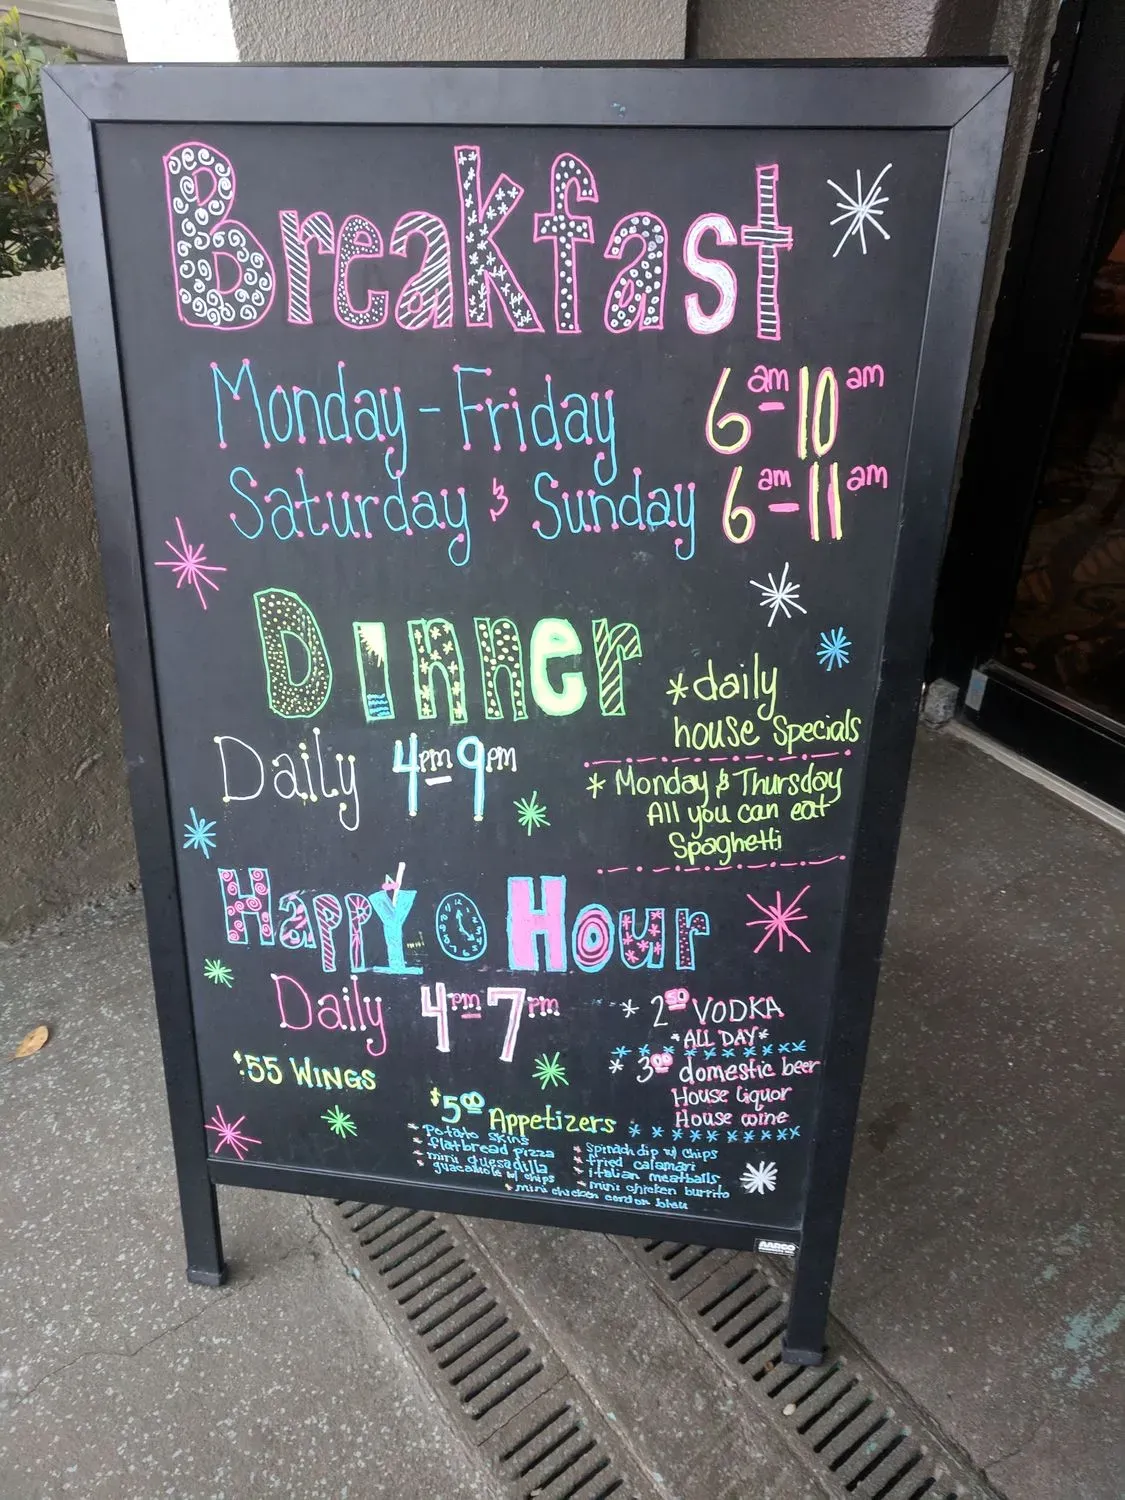 Breakfast
Monday - Friday 6am-10am
Saturday & Sunday 6am-11am
Dinner
*daily
house specials
Daily 4pm-9pm
* Monday & Thursday
All you can eat
Spaghetti
Happy Hour
Daily 4pm-7pm
* 2.50 VODKA
*ALL DAY*
* 3.00 domestic beer
House liquor
House wine
$.55 WINGS
$5.00 Appetizers
* Potato skins
* flatbread pizza
* mini quesadilla
* guacamole w/ chips
* Spinach dip w/ chips
* fried calamari
* italian meatballs
* mini chicken burrito
* mini chicken cordon bleu
AARCO